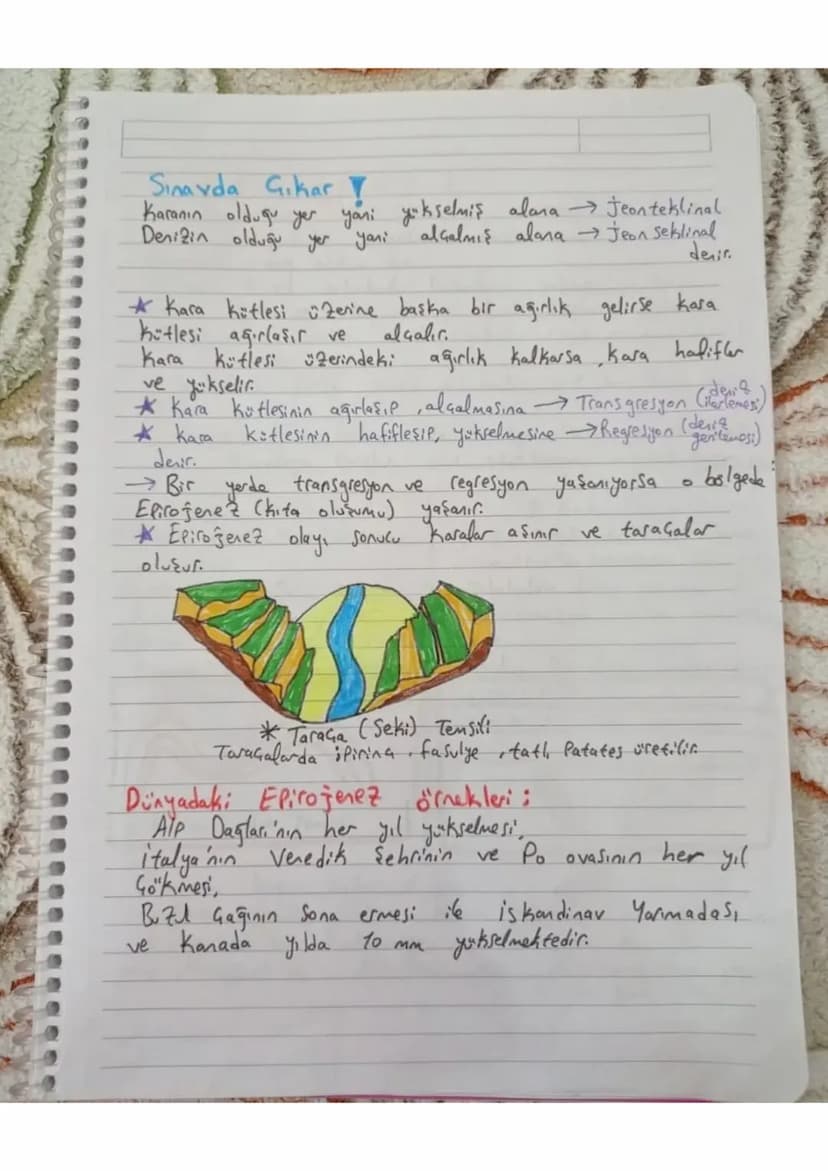 Sınavda Çıkar !
Karanın olduğu yer yani yükselmiş alana → Jeonteklinal
Denizin olduğu yer yani alçalmış alana → Jeonseklinal
denir.
★ Kara kütlesi üzerine başka bir ağırlık gelirse kara
kütlesi ağırlaşır ve alçalır.
Kara kütlesi üzerindeki ağırlık kalkarsa, kara hafifler
ve yükselir.
★ Kara kütlesinin ağırlaşıp, alçalmasına → Transgresyon (deniz ilerlemesi)
★ Kara kütlesinin hafifleşip, yükselmesine → Regresyon (deniz gerilemesi)
denir.
→ Bir yerde transgresyon ve regresyon yaşanıyorsa o bölgede
Epirojenez (kıta oluşumu) yaşanır.
★ Epirojenez olayı sonucu karalar aşınır ve taraçalar
oluşur.
* Taraça (Seki) Temsili
Taraçalarda ; Pirinç, fasulye, tatlı Patates üretilir.
Dünyadaki Epirojenez örnekleri :
Alp Dağları'nın her yıl yükselmesi,
İtalya'nın Venedik Şehrinin ve Po ovasının her yıl
Çökmesi,
Buzul Çağının Sona ermesi ile İskandinav Yarımadası
ve Kanada yılda 10 mm yükselmektedir.